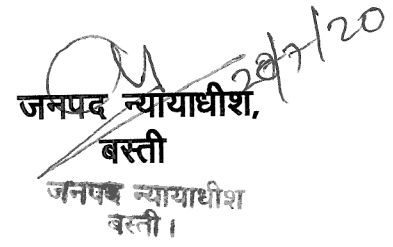 20/7/20
जनपद न्यायाधीश,
बस्ती
जनपद न्यायाधीश
बस्ती।